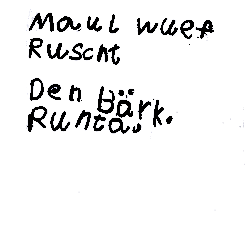 Maul wuef
Ruscht
Den bärk.
Runta.